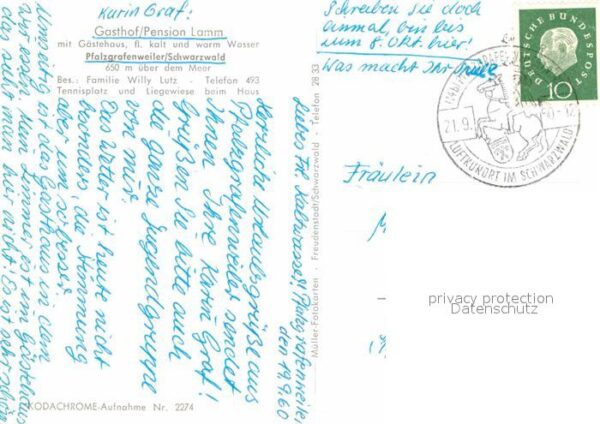 Karin Graf:
Gasthof/Pension Lamm
mit Gästehaus, fl. kalt und warm Wasser
Pfalzgrafenweiler/Schwarzwald
650 m über dem Meer
Bes.: Familie Willy Lutz - Telefon 493
Tennisplatz und Liegewiese beim Haus
Pfalzgrafenweiler,
den 19.9.60
Liebes Frl.
Herzliche Urlaubsgrüße aus
Pfalzgrafenweiler sendet
Ihnen Ihre Karin Graf!
Grüßen Sie bitte auch
die ganze Jugendgruppe
von mir.
Das Wetter ist heute nicht
besonders, die Stimmung
aber um so besser.
ist die Gasthaus in dem
wir essen. Mein Zimmer ist im Gästehaus
das sieht man hier nicht! Es ist sehr schön
KODACHROME-Aufnahme Nr. 2274
Müller-Fotokarten · Freudenstadt/Schwarzwald · Telefon 28 33
Schreiben sie doch
einmal, bin bis
zum 8. Okt. hier!
Was macht Ihr
Fräulein
DEUTSCHE BUNDESPOST
10
21.9.
LUFTKURORT IM SCHWARZWALD
privacy protection
Datenschutz